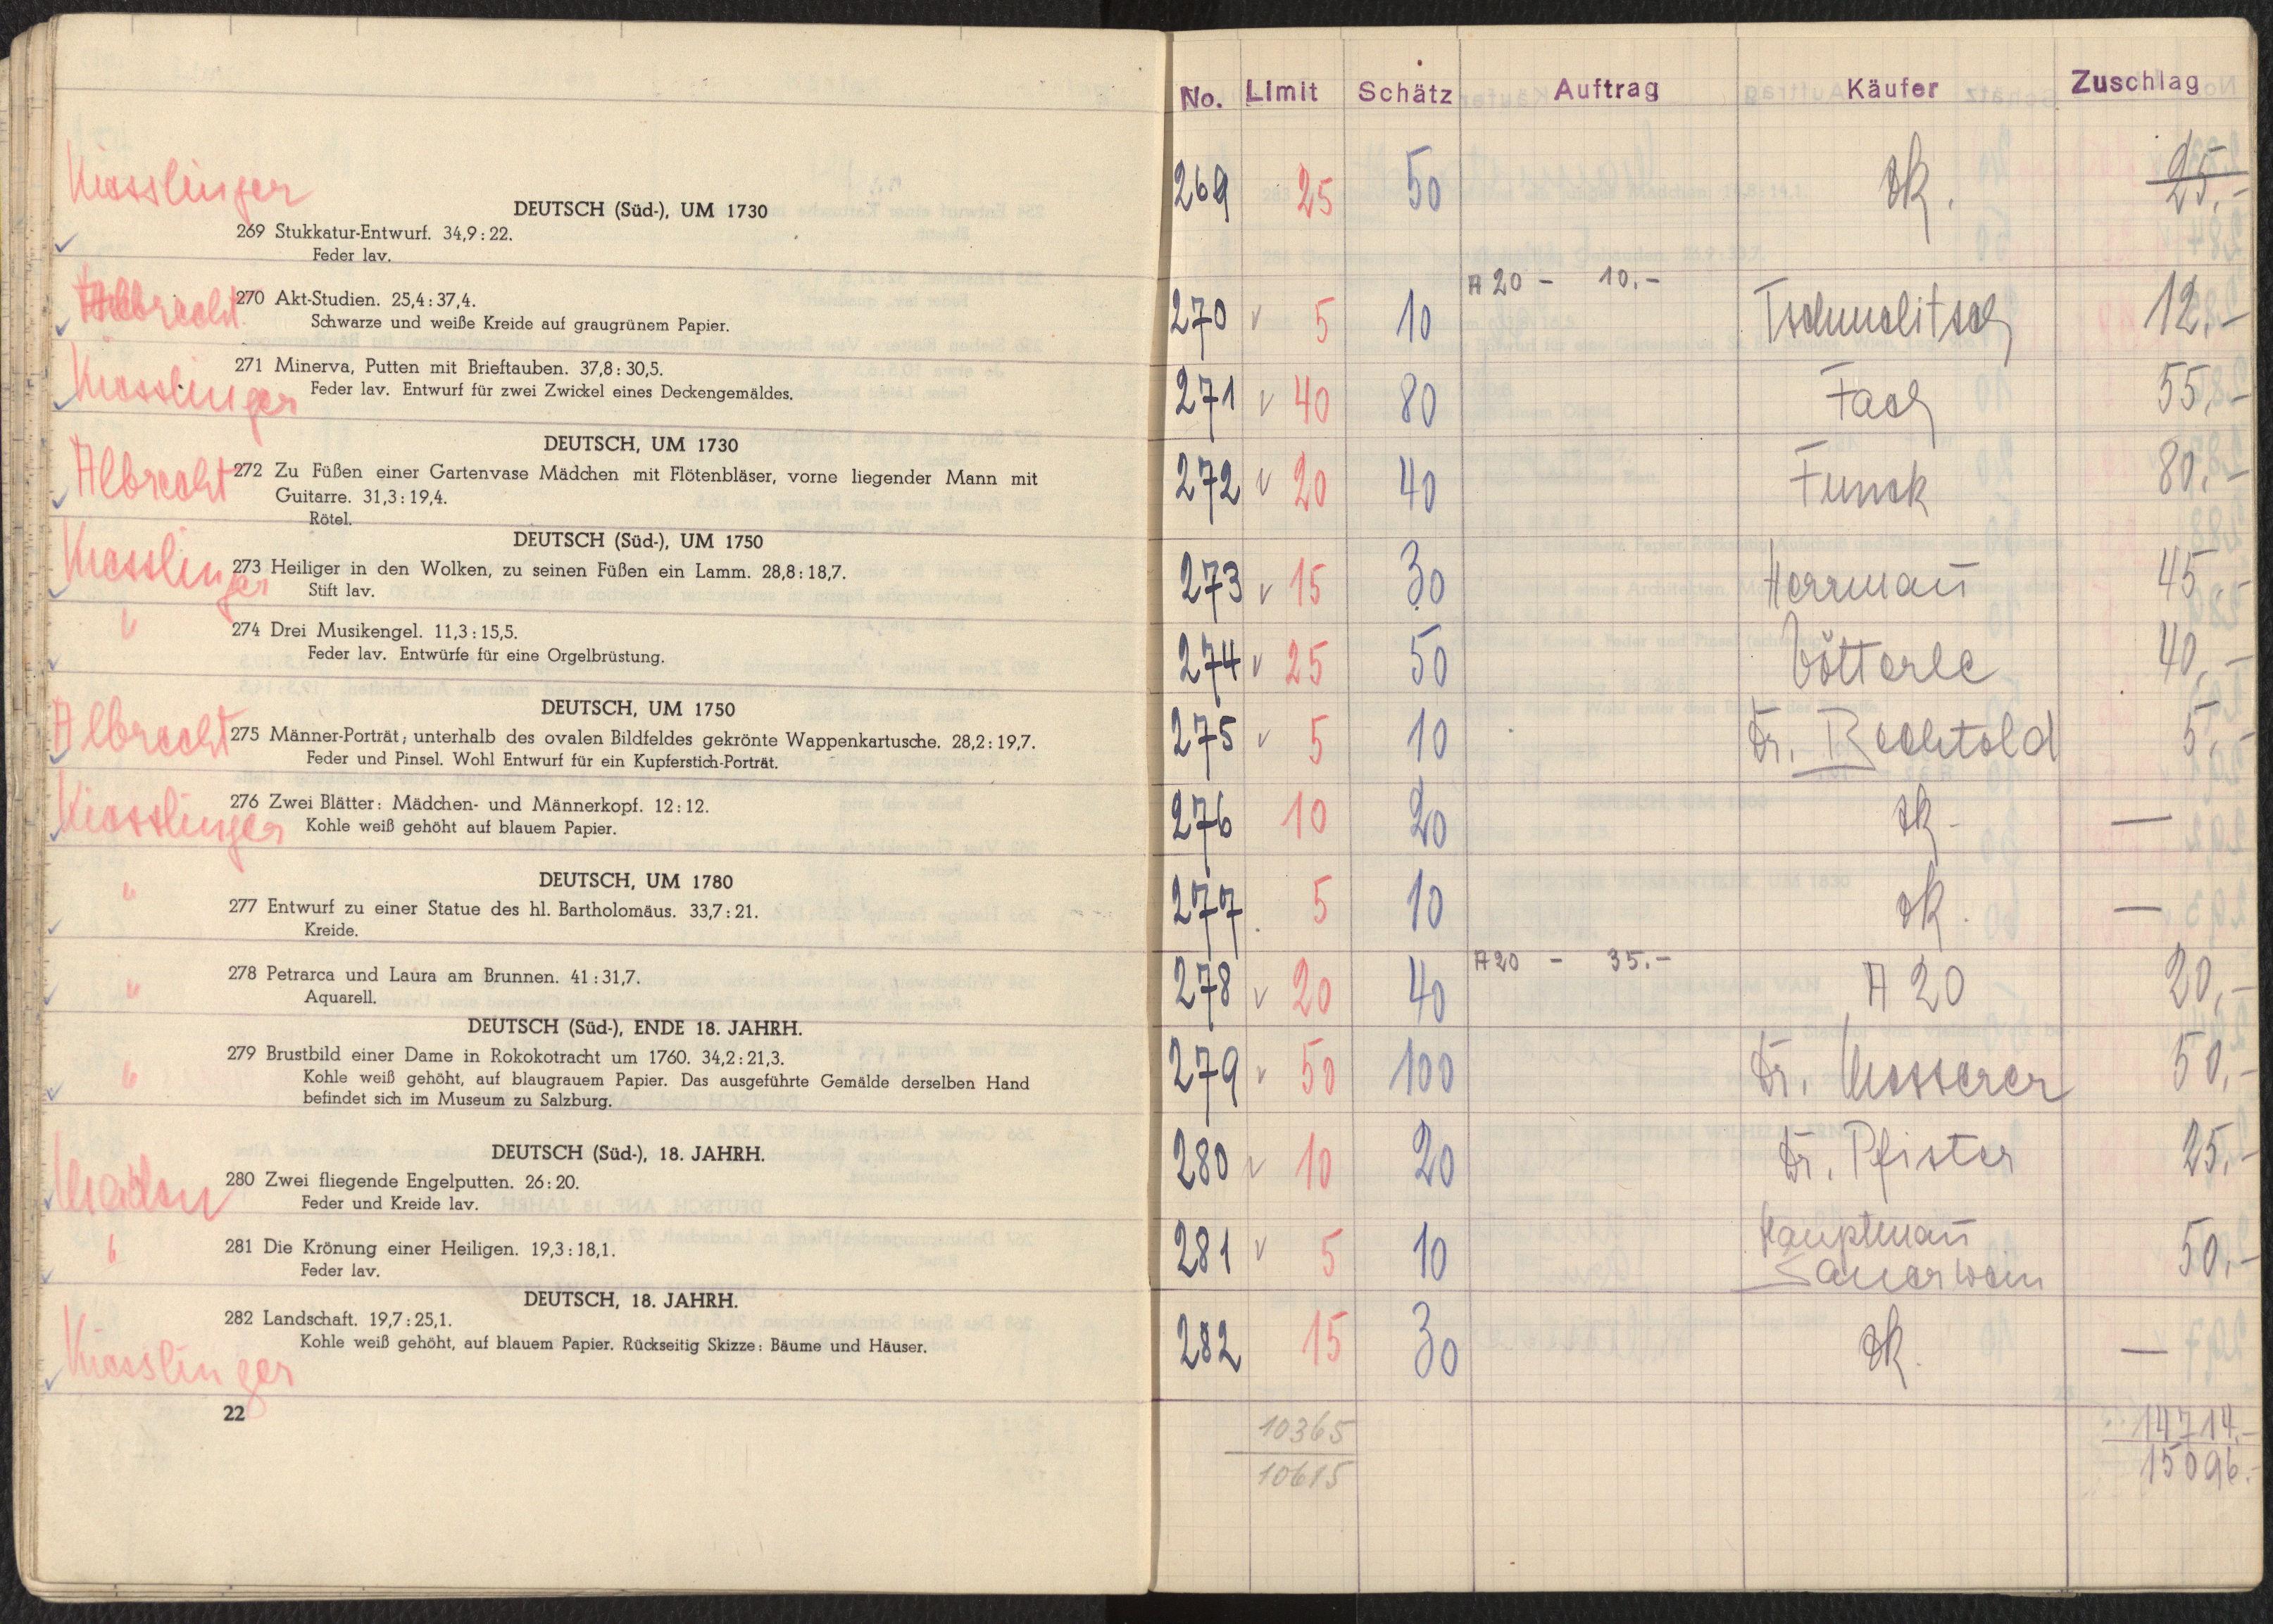 Kiesslinger
DEUTSCH (Süd-), UM 1730
269 Stukkatur-Entwurf. 34,9:22.
Feder lav.
Albrecht
270 Akt-Studien. 25,4:37,4.
Schwarze und weiße Kreide auf graugrünem Papier.
Kiesslinger
271 Minerva, Putten mit Brieftauben. 37,8:30,5.
Feder lav. Entwurf für zwei Zwickel eines Deckengemäldes.
DEUTSCH, UM 1730
Albrecht
272 Zu Füßen einer Gartenvase Mädchen mit Flötenbläser, vorne liegender Mann mit
Guitarre. 31,3:19,4.
Rötel.
DEUTSCH (Süd-), UM 1750
Kiesslinger
273 Heiliger in den Wolken, zu seinen Füßen ein Lamm. 28,8:18,7.
Stift lav.
"
274 Drei Musikengel. 11,3:15,5.
Feder lav. Entwürfe für eine Orgelbrüstung.
DEUTSCH, UM 1750
Albrecht
275 Männer-Porträt; unterhalb des ovalen Bildfeldes gekrönte Wappenkartusche. 28,2:19,7.
Feder und Pinsel. Wohl Entwurf für ein Kupferstich-Porträt.
Kiesslinger
276 Zwei Blätter: Mädchen- und Männerkopf. 12:12.
Kohle weiß gehöht auf blauem Papier.
DEUTSCH, UM 1780
"
277 Entwurf zu einer Statue des hl. Bartholomäus. 33,7:21.
Kreide.
"
278 Petrarca und Laura am Brunnen. 41:31,7.
Aquarell.
DEUTSCH (Süd-), ENDE 18. JAHRH.
"
279 Brustbild einer Dame in Rokokotracht um 1760. 34,2:21,3.
Kohle weiß gehöht, auf blaugrauem Papier. Das ausgeführte Gemälde derselben Hand
befindet sich im Museum zu Salzburg.
DEUTSCH (Süd-), 18. JAHRH.
280 Zwei fliegende Engelputten. 26:20.
Feder und Kreide lav.
"
281 Die Krönung einer Heiligen. 19,3:18,1.
Feder lav.
DEUTSCH, 18. JAHRH.
282 Landschaft. 19,7:25,1.
Kohle weiß gehöht, auf blauem Papier. Rückseitig Skizze: Bäume und Häuser.
Kiesslinger
22
No. Limit Schätz Auftrag Käufer Zuschlag
269 25 50 25,-
A 20 - 10.-
270 v 5 10 Tschmelitsch 12,-
271 v 40 80 Fach 55,-
272 v 20 40 Funck 80,-
273 v 15 30 Herrmañ 45,-
274 v 25 50 Vötterle 40,-
275 v 5 10 Dr. Bechtold 5,-
276 10 20 —
277 5 10 —
A20 - 35.-
278 v 20 40 A 20 20,-
279 v 50 100 Dr. Messerer 50,-
280 v 10 20 Dr. Pfister 25,-
281 v 5 10 Hauptmañ 50,-
Sauerwein
282 15 30 —
10365 14714.-
10685 15096.-